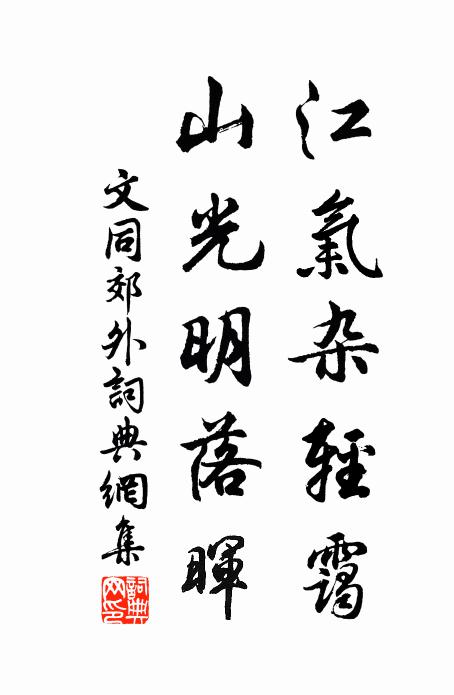 江氣杂輕靄
山光明落暉
文同郊外詞典網集
詞典网印